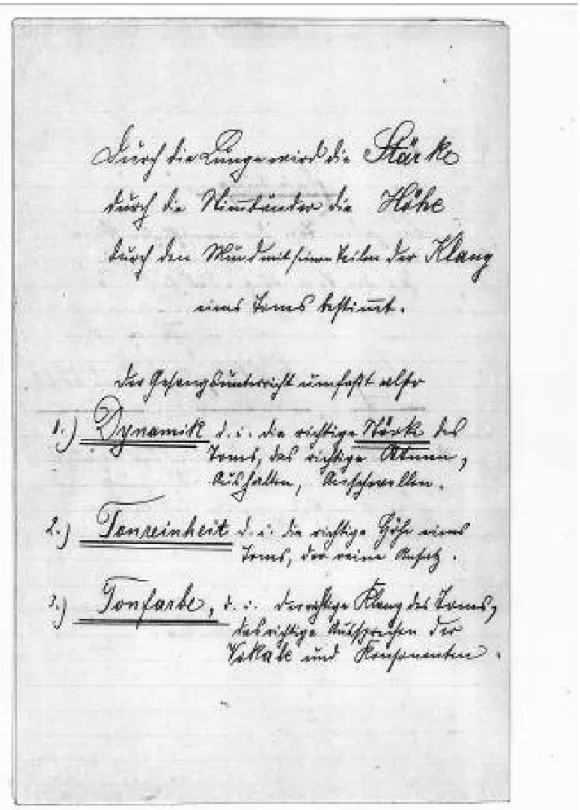 Durch die Lunge wird die Stärke
durch die Stimmbänder die Höhe
durch den Mund mit seinen Teilen der Klang
eines Tones bestimmt.
Der Gesangsunterricht umfaßt also
1.) Dynamik d. i. die richtige Stärke des
Tones, das richtige Atmen,
Aushalten, Anschwellen.
2.) Tonreinheit d. i. die richtige Höhe eines
Tones, der reine Ansatz.
3.) Tonfarbe, d. i. der richtige Klang des Tones,
das richtige Aussprechen der
Vokale und Konsonanten.